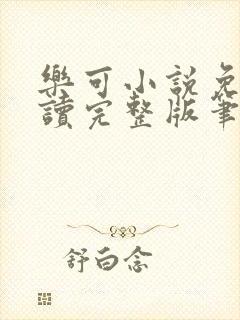 樂可小説免
讀完整版筆
舒白念